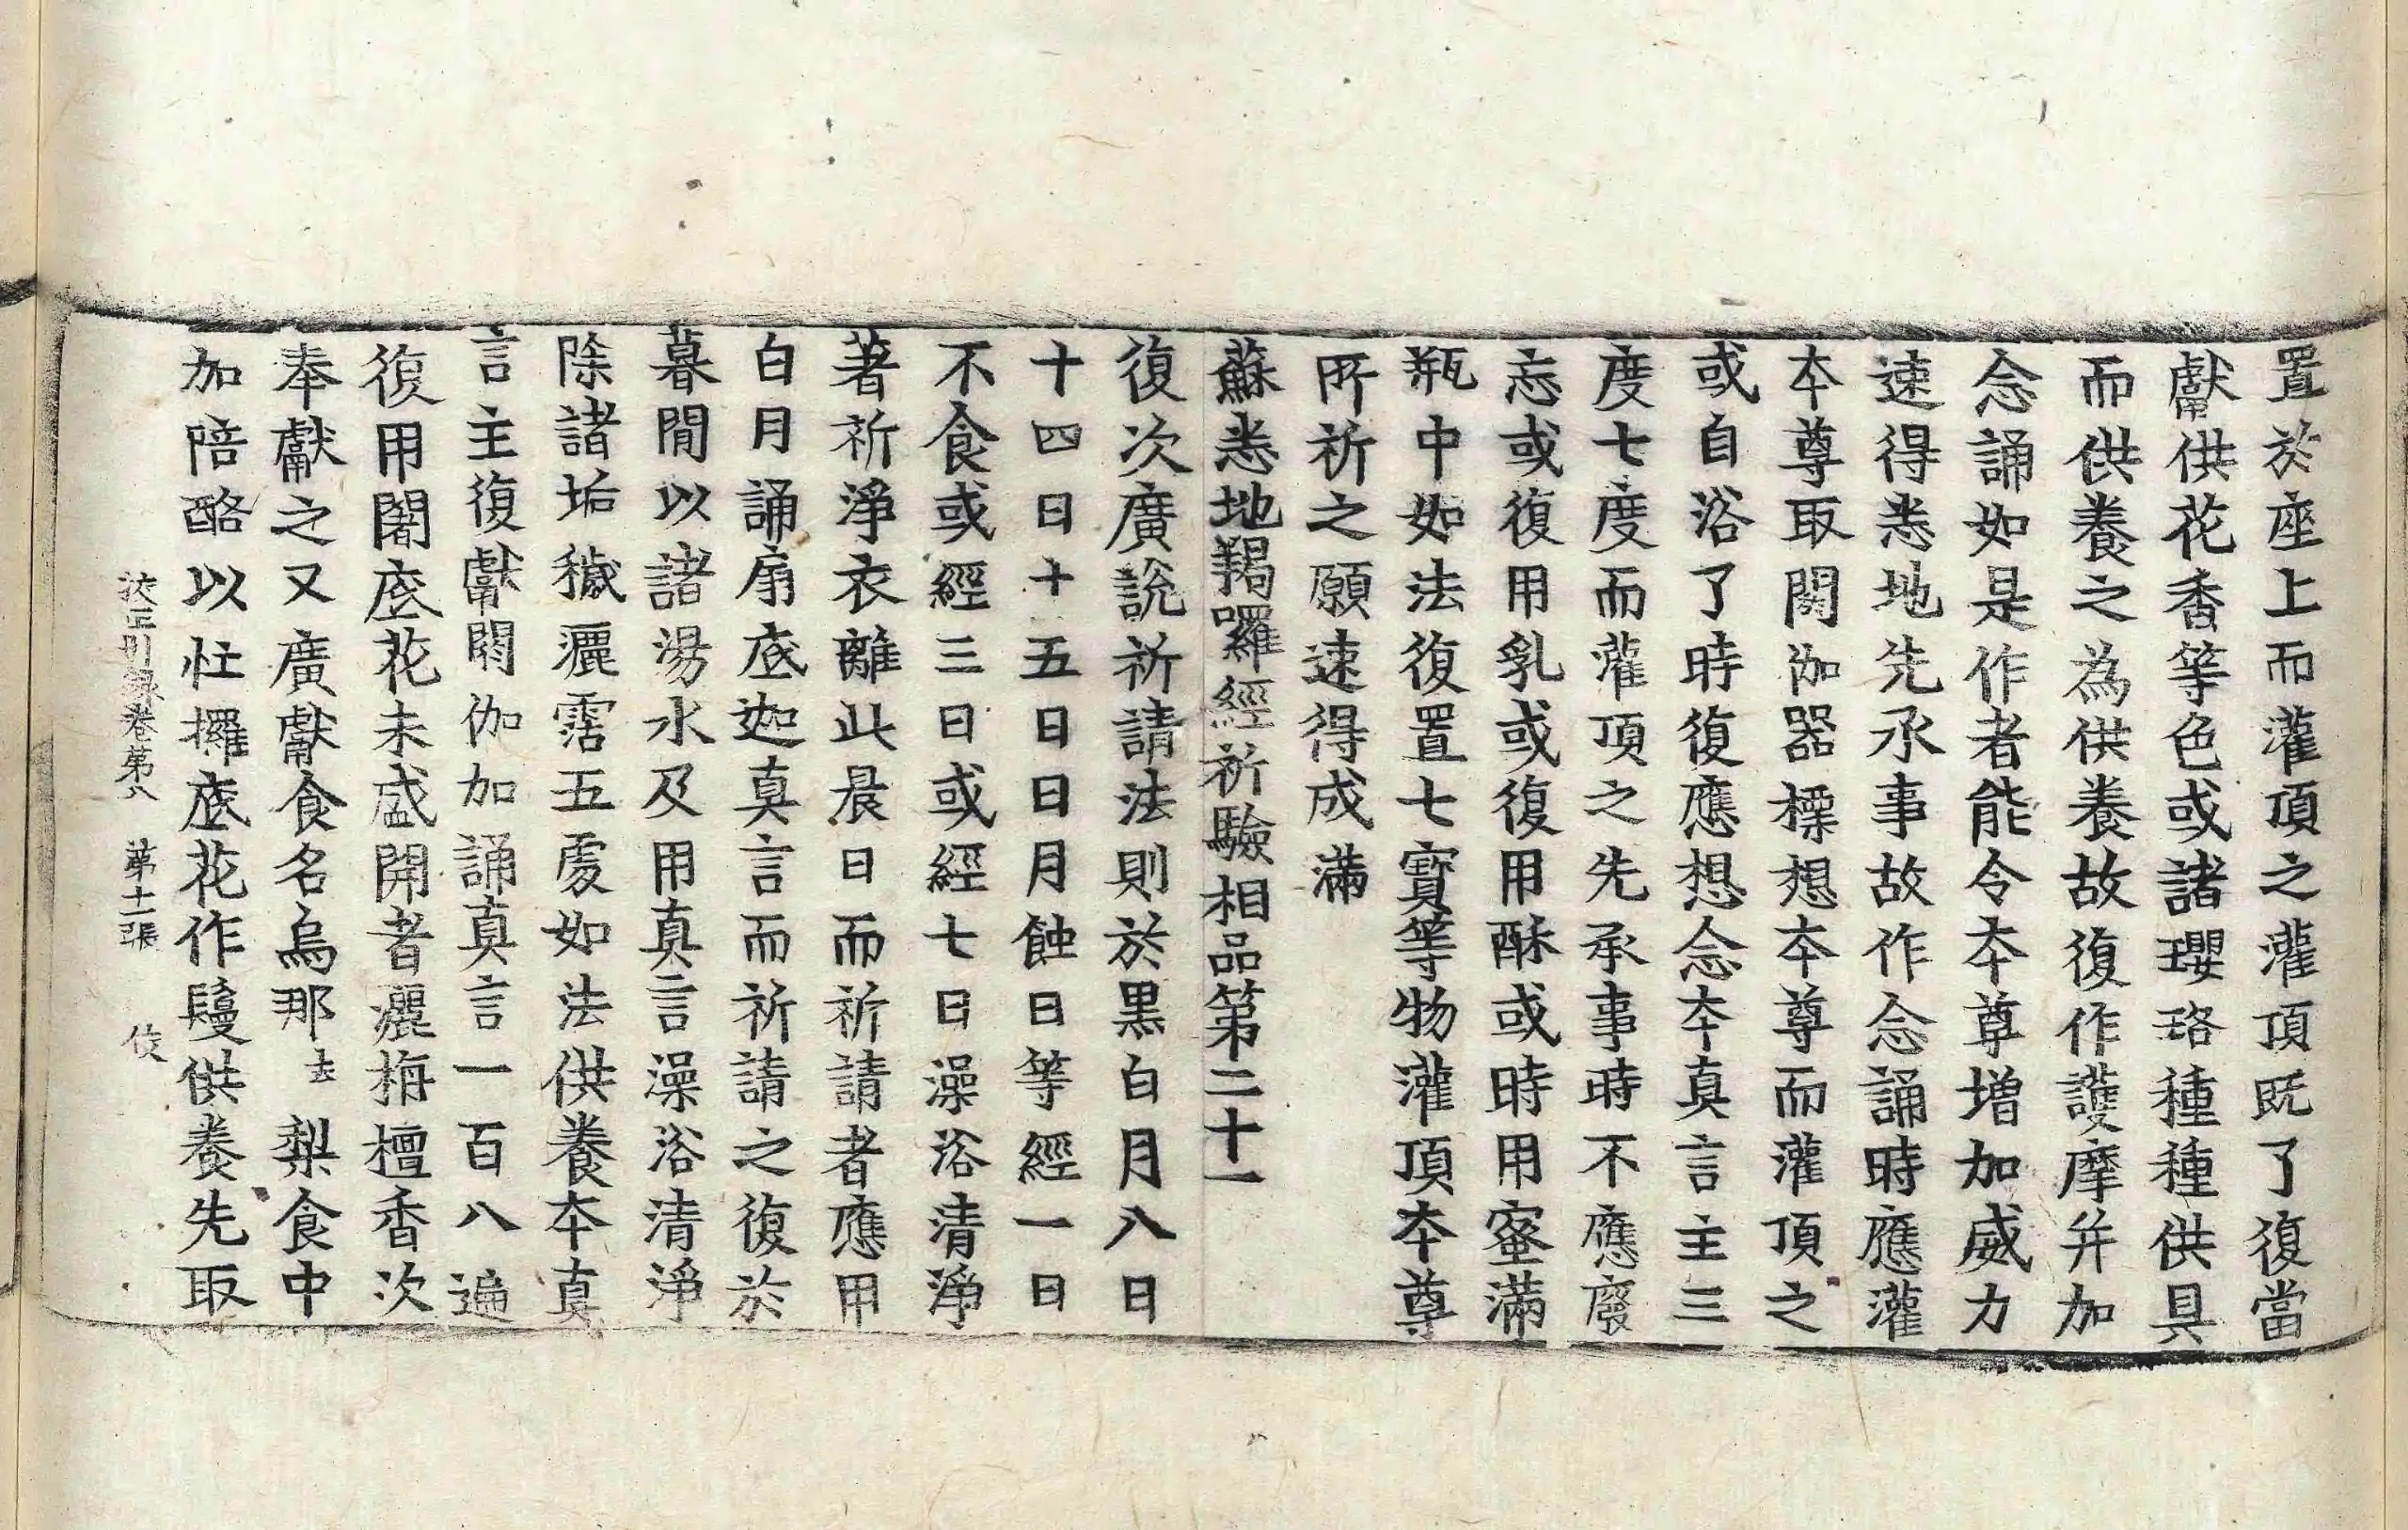 置於座上而灌頂之灌頂既了復當
獻供花香等色或諸瓔珞種種供具
而供養之為供養故復作護摩并加
念誦如是作者能令本尊增加威力
速得悉地先承事故作念誦時應灌
本尊取閼伽器標想本尊而灌頂之
或自浴了時復應想念本真言主三
度七度而灌頂之先承事時不應廢
忘或復用乳或復用酥或時用蜜滿
瓶中如法復置七寶等物灌頂本尊
所祈之願速得成滿
蘇悉地羯囉經祈驗相品第二十一
復次廣說祈請法則於黑白月八日
十四日十五日日月蝕日等經一日
不食或經三日或經七日澡浴清淨
著祈淨衣離此晨日而祈請者應用
白月誦扇底迦真言而祈請之復於
暮間以諸湯水及用真言澡浴清淨
除諸垢穢灑霑五處如法供養本真
言主復獻閼伽加誦真言一百八遍
復用闍底花未盛開者灑栴檀香次
奉獻之又廣獻食名烏那去梨食中
加陪酪以忙攞底花作鬘供養先取
校正別錄卷第八　第十二張　伎